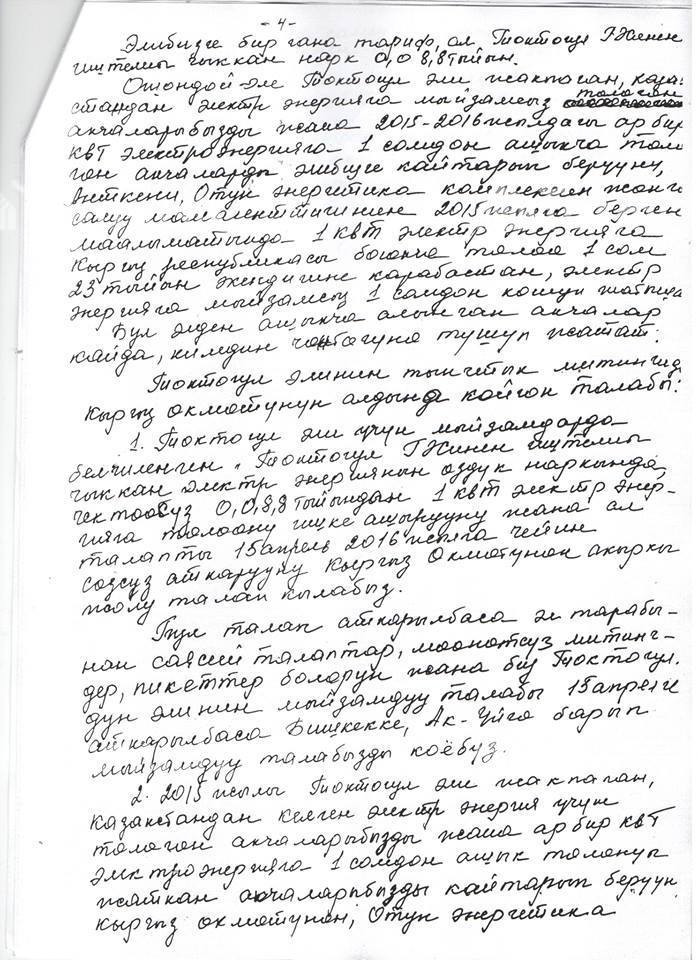 - 4 -
Элибизге бир гана тариф, ал Токтогул ГЭСинен
иштелип чыккан нарк 0,0 8,8 тыйын.
Ошондой эле Токтогул эли жакпаган, Казак-
стандан электр энергияга мыйзамсыз төлөгөн
акчаларыбызды жана 2015-2016 жылдагы ар бир
квт электроэнергияга 1 сомдон ашыкча төлө
гөн акчаларды элибизге кайтарып берүүнү,
Анткени, Отун энергетика комплексин жөнгө
салуу мамагенттигинин 2015 жылга берген
маалыматында 1 квт электр энергияга
Кыргыз республикасы боюнча төлөө 1 сом
23 тыйын экендигине карабастан, электр
энергияга мыйзамсыз 1 сомдон кошуп жатышат
Бул элден ашыкча алынган акчалар
кайда, кимдин чөнтөгүнө түшүп жатат.
Токтогул элинин тынчтык митингиде
Кыргыз өкмөтүнүн алдында койгон талабы:
1. Токтогул эли үчүн мыйзамдарда
белгиленген, Токтогул ГЭСинен иштелип
чыккан электр энергиянын өздүк наркында,
чектөөсүз 0,0,8,8 тыйындан 1 квт электр энер-
гияга төлөөнү ишке ашырууну жана ал
талапты 15 апрель 2016 жылга чейин
сөзсүз аткарууну Кыргыз Өкмөтүнөн акыркы
жолу талап кылабыз.
Бул талап аткарылбаса эл тарабы-
нан саясий талаптар, мөөнөтсүз митинг-
дер, пикеттер болорун жана биз Токтогул.
дун элинин мыйзамдуу талабы 15 апрелге
аткарылбаса Бишкекке, Ак-Үйгө барып
мыйзамдуу талабызды коёбуз.
2. 2015 жылы Токтогул эли жакпаган,
Казакстандан келген электр энергия үчүн
төлөгөн акчаларыбызды жана ар бир квт
электроэнергияга 1 сомдон ашык төлөнүп
жаткан акчаларыбызды кайтарып берүүнү
Кыргыз өкмөтүнөн, Отун энергетика